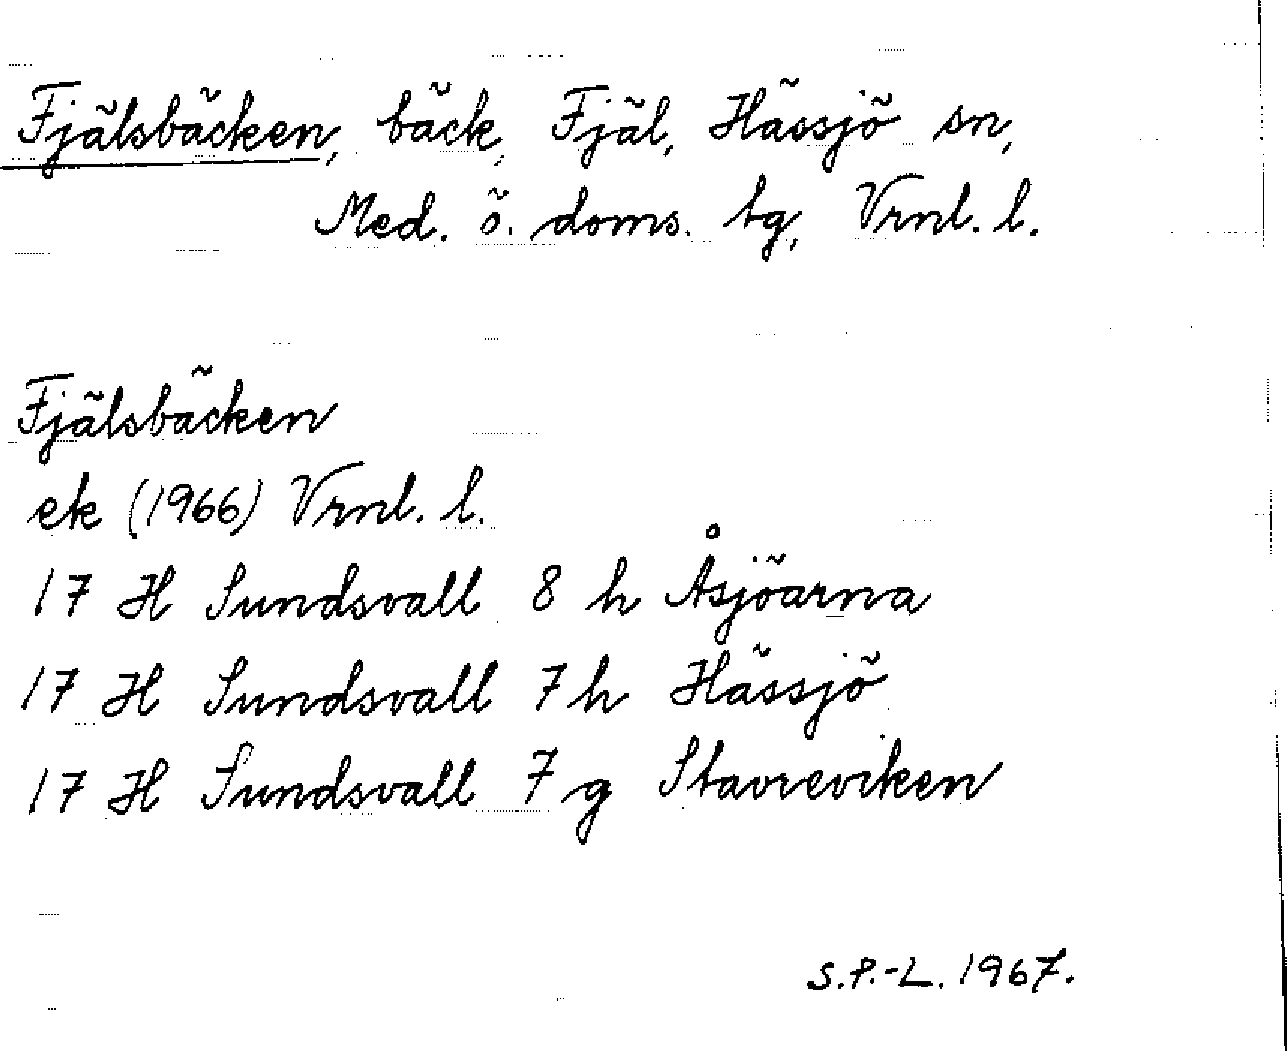 Fjälsbäcken, bäck, Fjäl, Hässjö sn,
Med. ö. doms. tg, Vrnl. l.
Fjälsbäcken
ek (1966) Vrnl. l.
17 H Sundsvall 8 h Åsjöarna
17 H Sundsvall 7 h Hässjö
17 H Sundsvall 7 g Stavreviken
S.P.-L. 1967.